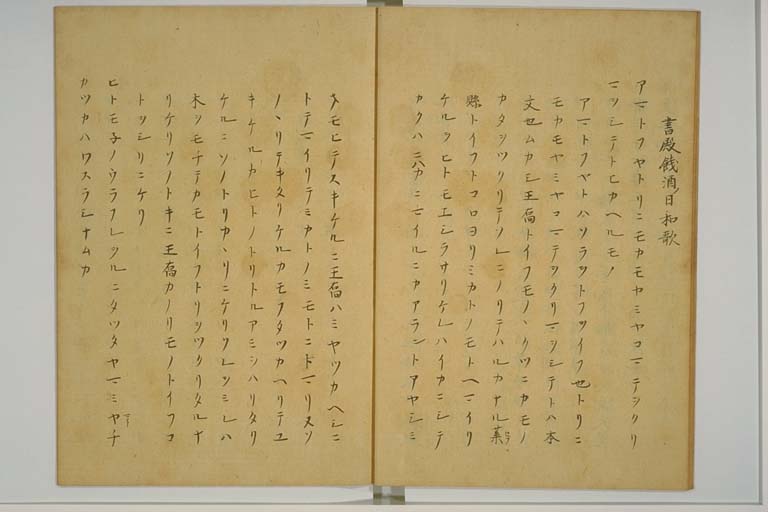 書殿餞酒日和歌
アマトフヤトリニモカモヤミヤコマテヲクリ
マヲシテトヒカヘルモノ
アマトフヤトハソラヲトフヲイフ也トリニ
モカモヤミヤコマテヲクリマヲシテトハ本
文也ムカシ王喬トイフモノヽクツニカモノ
カタヲツクリテソレニノリテハルカナル葉
縣トイフトコロヨリミカトノモトヘマイリ
ケルヲヒトモエシラサリケレハイカニシテ
カクハニハカニマイルニカアラントアヤシミ
オモヒテスキケルニ王喬ハミヤツカヘシニ
トテマイリテミカトノミモトニトマリヌソ
ノヽリテキタリケルカモフタツカヘリテユ
キケルカヒトノトリトルアミヲハリタリ
ケルニソノトリカヽリニケリクレヲミレハ
木ヲモチテカモトイフトリヲツクリタルナ
リケリソノトキニ王喬カノリモノトイフコ
トヲシリニケリ
ヒトモネノウラフレヲルニタツタヤマミマチ
カツカハワスラシナムカ